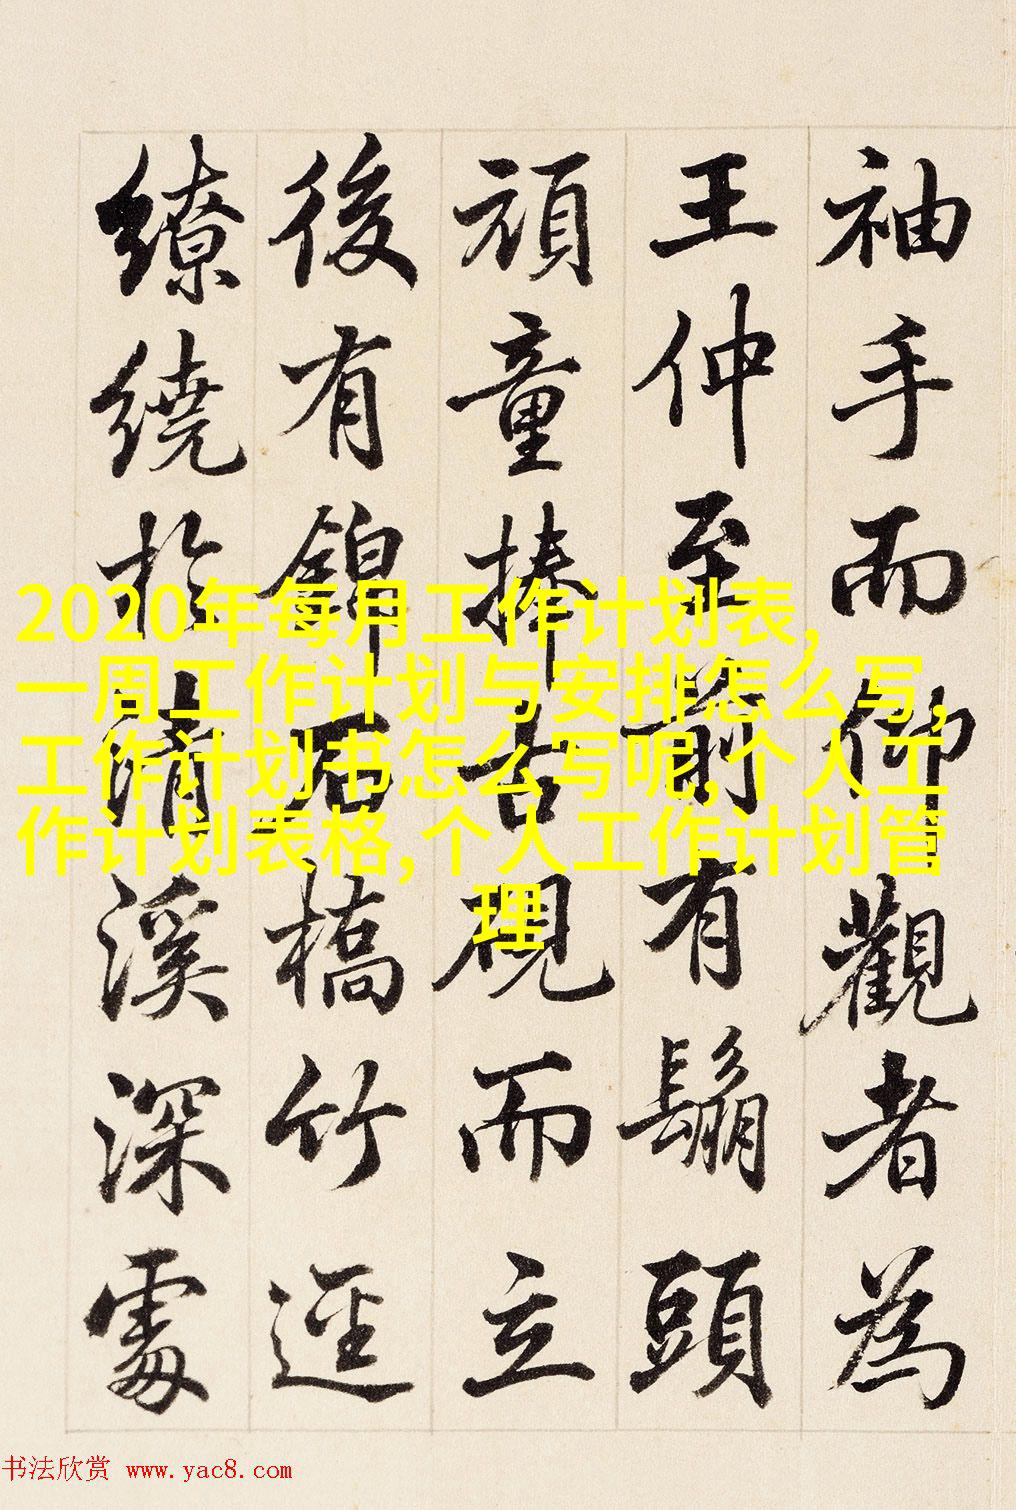 袖手而仰觀者為
王仲至前有鬅頭
頑童捧古硯而立
後有錦石橋竹逕
繚繞於清溪深處
2020年每月工作计划表,
一周工作计划与安排怎么写,
工作计划书怎么写呢,个人工
作计划表格,个人工作计划管
理
书法欣赏 www.yac8.com